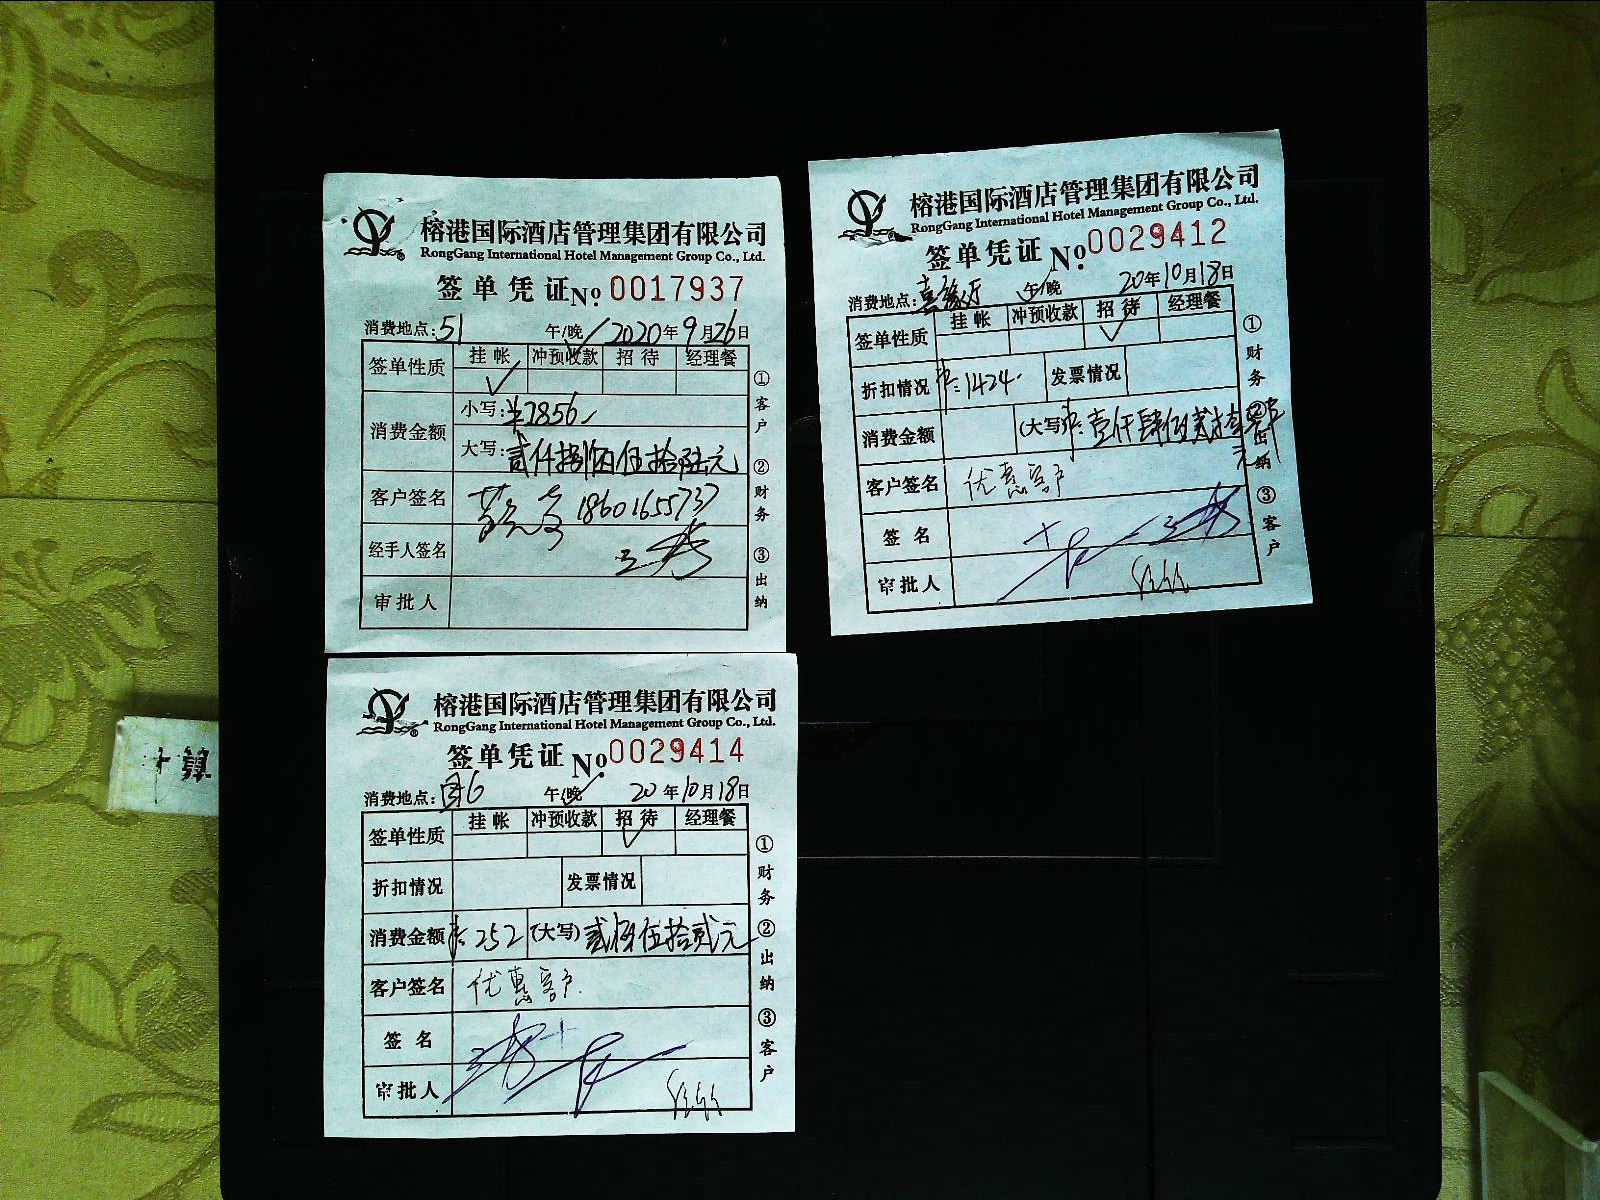 榕港国际酒店管理集团有限公司
RongGang International Hotel Management Group Co., Ltd.
签单凭证 No. 0017937
消费地点: 51 午/晚 2020年9月26日
签单性质 挂帐 冲预收款 招待 经理餐
消费金额 小写: ¥2856
大写: 贰仟捌佰伍拾陆元
客户签名 18601655737
经手人签名
审批人
①客户 ②财务 ③出纳
榕港国际酒店管理集团有限公司
RongGang International Hotel Management Group Co., Ltd.
签单凭证 No. 0029412
消费地点: 午/晚 20年10月18日
签单性质 挂帐 冲预收款 招待 经理餐
折扣情况 ¥:1424. 发票情况
消费金额 (大写) 壹仟肆佰贰拾肆元
客户签名 优惠客户
签名
审批人
①财务 ②出纳 ③客户
榕港国际酒店管理集团有限公司
RongGang International Hotel Management Group Co., Ltd.
签单凭证 No. 0029414
消费地点: 午/晚 20年10月18日
签单性质 挂帐 冲预收款 招待 经理餐
折扣情况 发票情况
消费金额 ¥:252 (大写) 贰佰伍拾贰元
客户签名 优惠客户
签名
审批人
①财务 ②出纳 ③客户